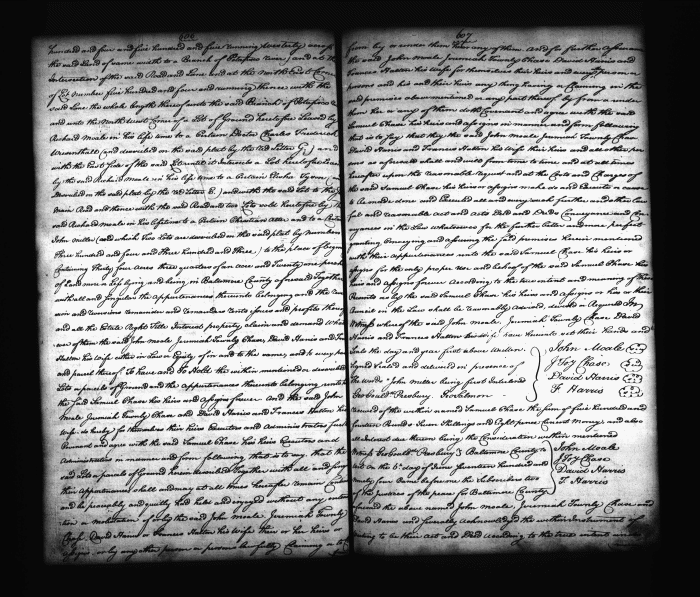 606
hundred and four and five hundred and five running Westerly across
the said Land of same width to a Branch of Patapsco River and at the
Intersection of the said Road and Line and at the North East Corner
of Lot number five hundred and four and running thence with the
said Line the whole length thereof unto the said Branch of Patapsco River
and unto the North west Corner of a Lot of Ground heretofore Leased by
Richard Moale in his life time to a Certain Doctor Charles Frederick
Wiesenthall (and described on the said plat by the Letter G) and
with the East Side of the said Lot until it Intersects a Lot heretofore Leased
by the said Richard Moale in his life time to a Certain
described in the said plat by the Letter E) and with the said Lot to the
main Road and thence with the said Road and two Lots sold heretofore by the
said Richard Moale in his lifetime to a Certain Christian and to a Certain
John Miller (and which two Lots are described in the said plat by number
Three hundred and four and Three hundred and Three) to the place of begin
Containing Thirty four Acres three quarters of an acre and Twenty one perches
of Land more or Less lying and being in Baltimore County aforesaid Together
with all and singular the appurtenances thereunto belonging and the rever
sion and reversions remainder and remainders rents issues and profits thereof
and all the Estate Right Title Interest property claim and demand whatso
ever of them the said John Moale Jeremiah Townly Chase, David Harris and Frances
Harris his wife either in Law or Equity of in and to the same, and to every part
and parcel thereof To have and To Hold the within mentioned or described
Lots or parcels of Ground and the appurtenances thereunto belonging unto
the said Samuel Chase his Heirs and Assigns forever And the said John
Moale Jeremiah Townly Chase and David Harris and Frances Harris his
Wife do hereby for themselves their Heirs Executors and Administrators
Covenant and agree with the said Samuel Chase his Heirs Executors and
Administrators in manner and form following that is to say that the
said Lots or parcels of Ground herein described Together with all and singular
their Appurtenances shall and may at all times hereafter remain
and be peaceably and quietly had held and enjoyed without any
tion or molestation of or by the said John Moale Jeremiah Townly
Chase David Harris or Frances Harris his Wife their or her heirs or
assigns or by any other person or persons lawfully Claiming or to
607
from by or under them or any of them. And for further Assurance
the said John Moale Jeremiah Townly Chase David Harris and
Frances Harris his Wife for themselves their heirs and every person or
persons and his and their heirs any thing having or Claiming in the
said premises above mentioned or any part thereof by from or under
them her or any of them doth Covenant and agree with the said
Samuel Chase his heirs and assigns in manner and form following
that is to say that they the said John Moale Jeremiah Townly Chase
David Harris and Frances Harris his Wife their heirs and all other per
sons as aforesaid shall and will from time to time and at all times
hereafter upon the reasonable request and at the Costs and Charges of
the said Samuel Chase his heirs or assigns make do and Execute or cause
to be made done and Executed all and every such further and other law
ful and reasonable act and acts Deed and Deeds Conveyance and Con
veyances in the Law whatsoever for the further better and more perfect
granting conveying and assuring the said premises herein mentioned
with their appurtenances unto the said Samuel Chase his heirs or
assigns for the only proper use and behoof of the said Samuel Chase his
heirs and assigns forever According to the true intent and meaning of these
Presents as by the said Samuel Chase his heirs and assigns or his or their
Council in the Law shall be reasonably advised, devised or required In
Witness whereof the said John Moale, Jeremiah Townly Chase David
Harris and Frances Harris his Wife have hereunto set their hands and
Seals the day and year first above written
Signed Sealed and delivered in presence of
The words "John Miller being first Interlined
Geo Gouldt. Presbury. Jas Calhoun
John Moale
Jty Chase
David Harris
F. Harris
Received of the within named Samuel Chase the sum of five Hundred and
fourteen Pounds Seven Shillings and Eight pence Current Money and also
all Interest due thereon being the Consideration within mentioned
Witness Geo Gouldt. Presbury Baltimore County to
wit On the 6th day of June Seventeen hundred and
ninety four Came before the Subscribers two
of the Justices of the peace for Baltimore County
John Moale
Jty Chase
David Harris
F Harris
aforesaid the above named John Moale, Jeremiah Townly Chase and
David Harris and severally Acknowledged the within Instrument of
writing to be their Act and Deed according to the true intent